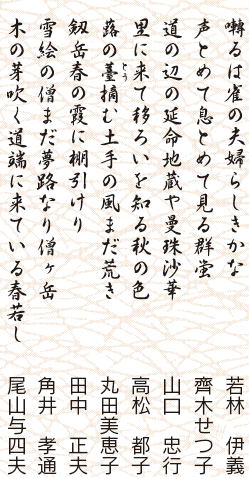 囀るは雀の夫婦らしきかな　若林　伊義
声とめて息とめて見る群蛍　齊木せつ子
道の辺の延命地蔵や曼珠沙華　山口　忠行
里に来て移ろいを知る秋の色　高松　都子
蕗の薹摘む土手の風まだ荒き　丸田美恵子
とう
剱岳春の霞に棚引けり　田中　正夫
雪絵の僧まだ夢路なり僧ヶ岳　角井　孝通
木の芽吹く道端に来ている春若し　尾山与四夫